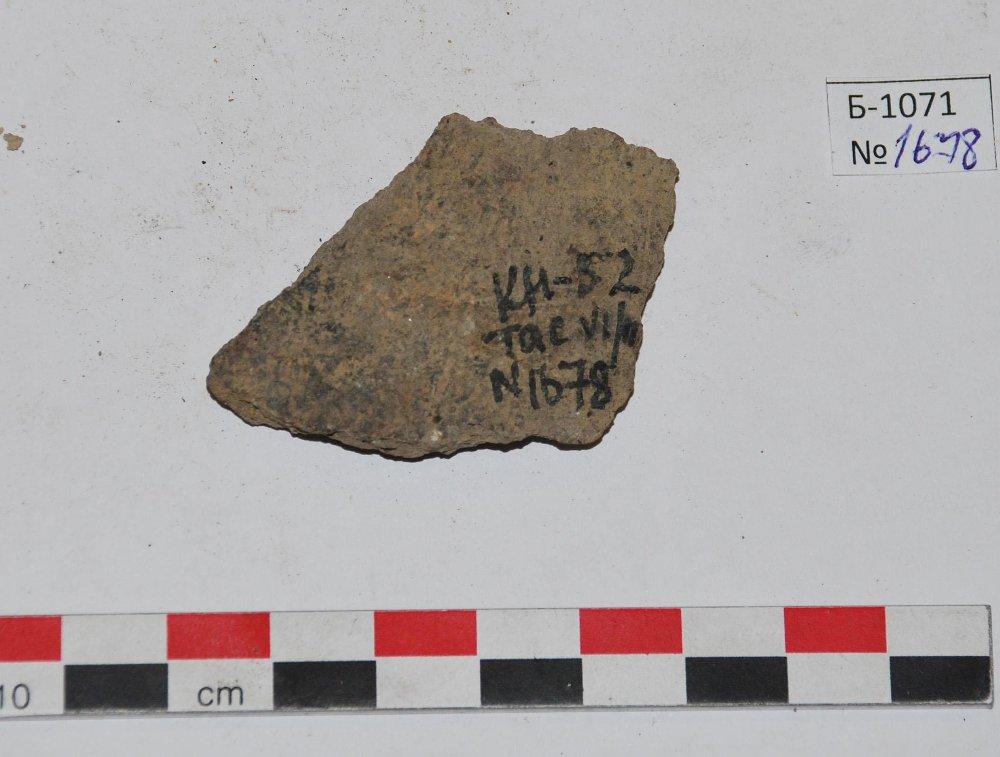 Б-1071
№ 1678
КН-52
Тае VI/II
N1678
10 cm